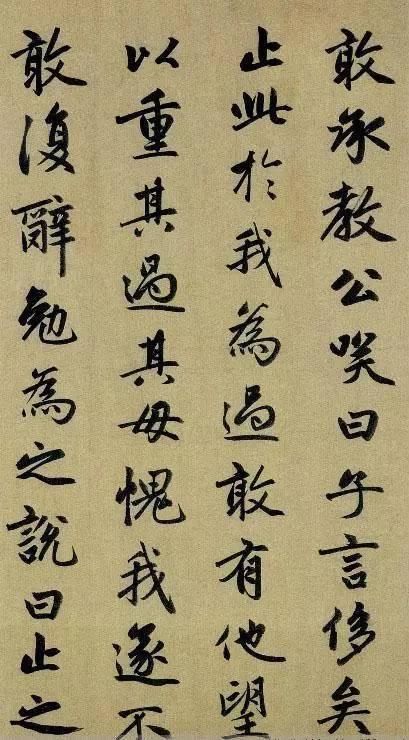 敢承教公咲曰子言侈矣
止此於我為過敢有他望
以重其過其毋愧我遂不
敢復辭勉為之說曰止之